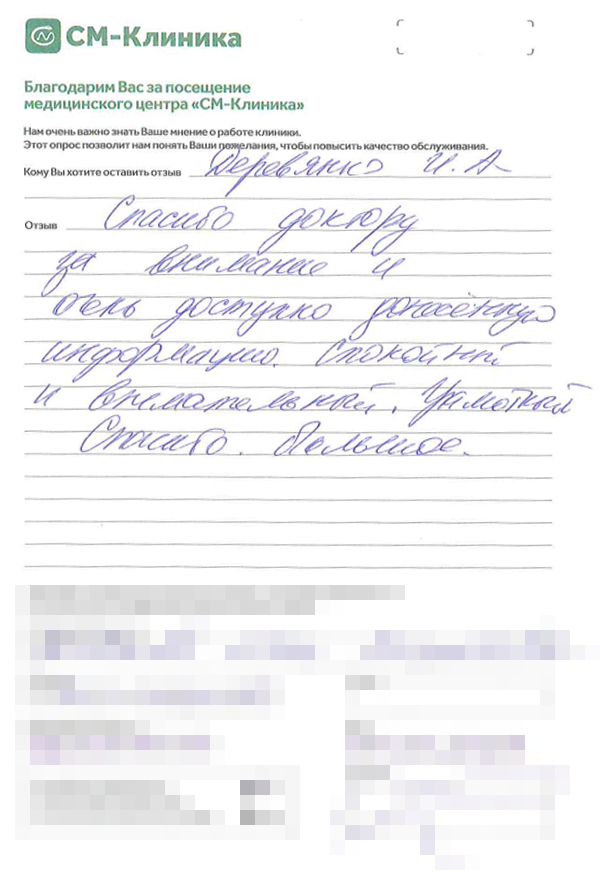 СМ-Клиника
Благодарим Вас за посещение
медицинского центра «СМ-Клиника»
Нам очень важно знать Ваше мнение о работе клиники.
Этот опрос позволит нам понять Ваши пожелания, чтобы повысить качество обслуживания.
Кому Вы хотите оставить отзыв Деревянко И. А
Отзыв Спасибо доктору
за внимание и
очень доступно донесённую
информацию. Спокойный
и внимательный. Грамотный
Спасибо. Большое.